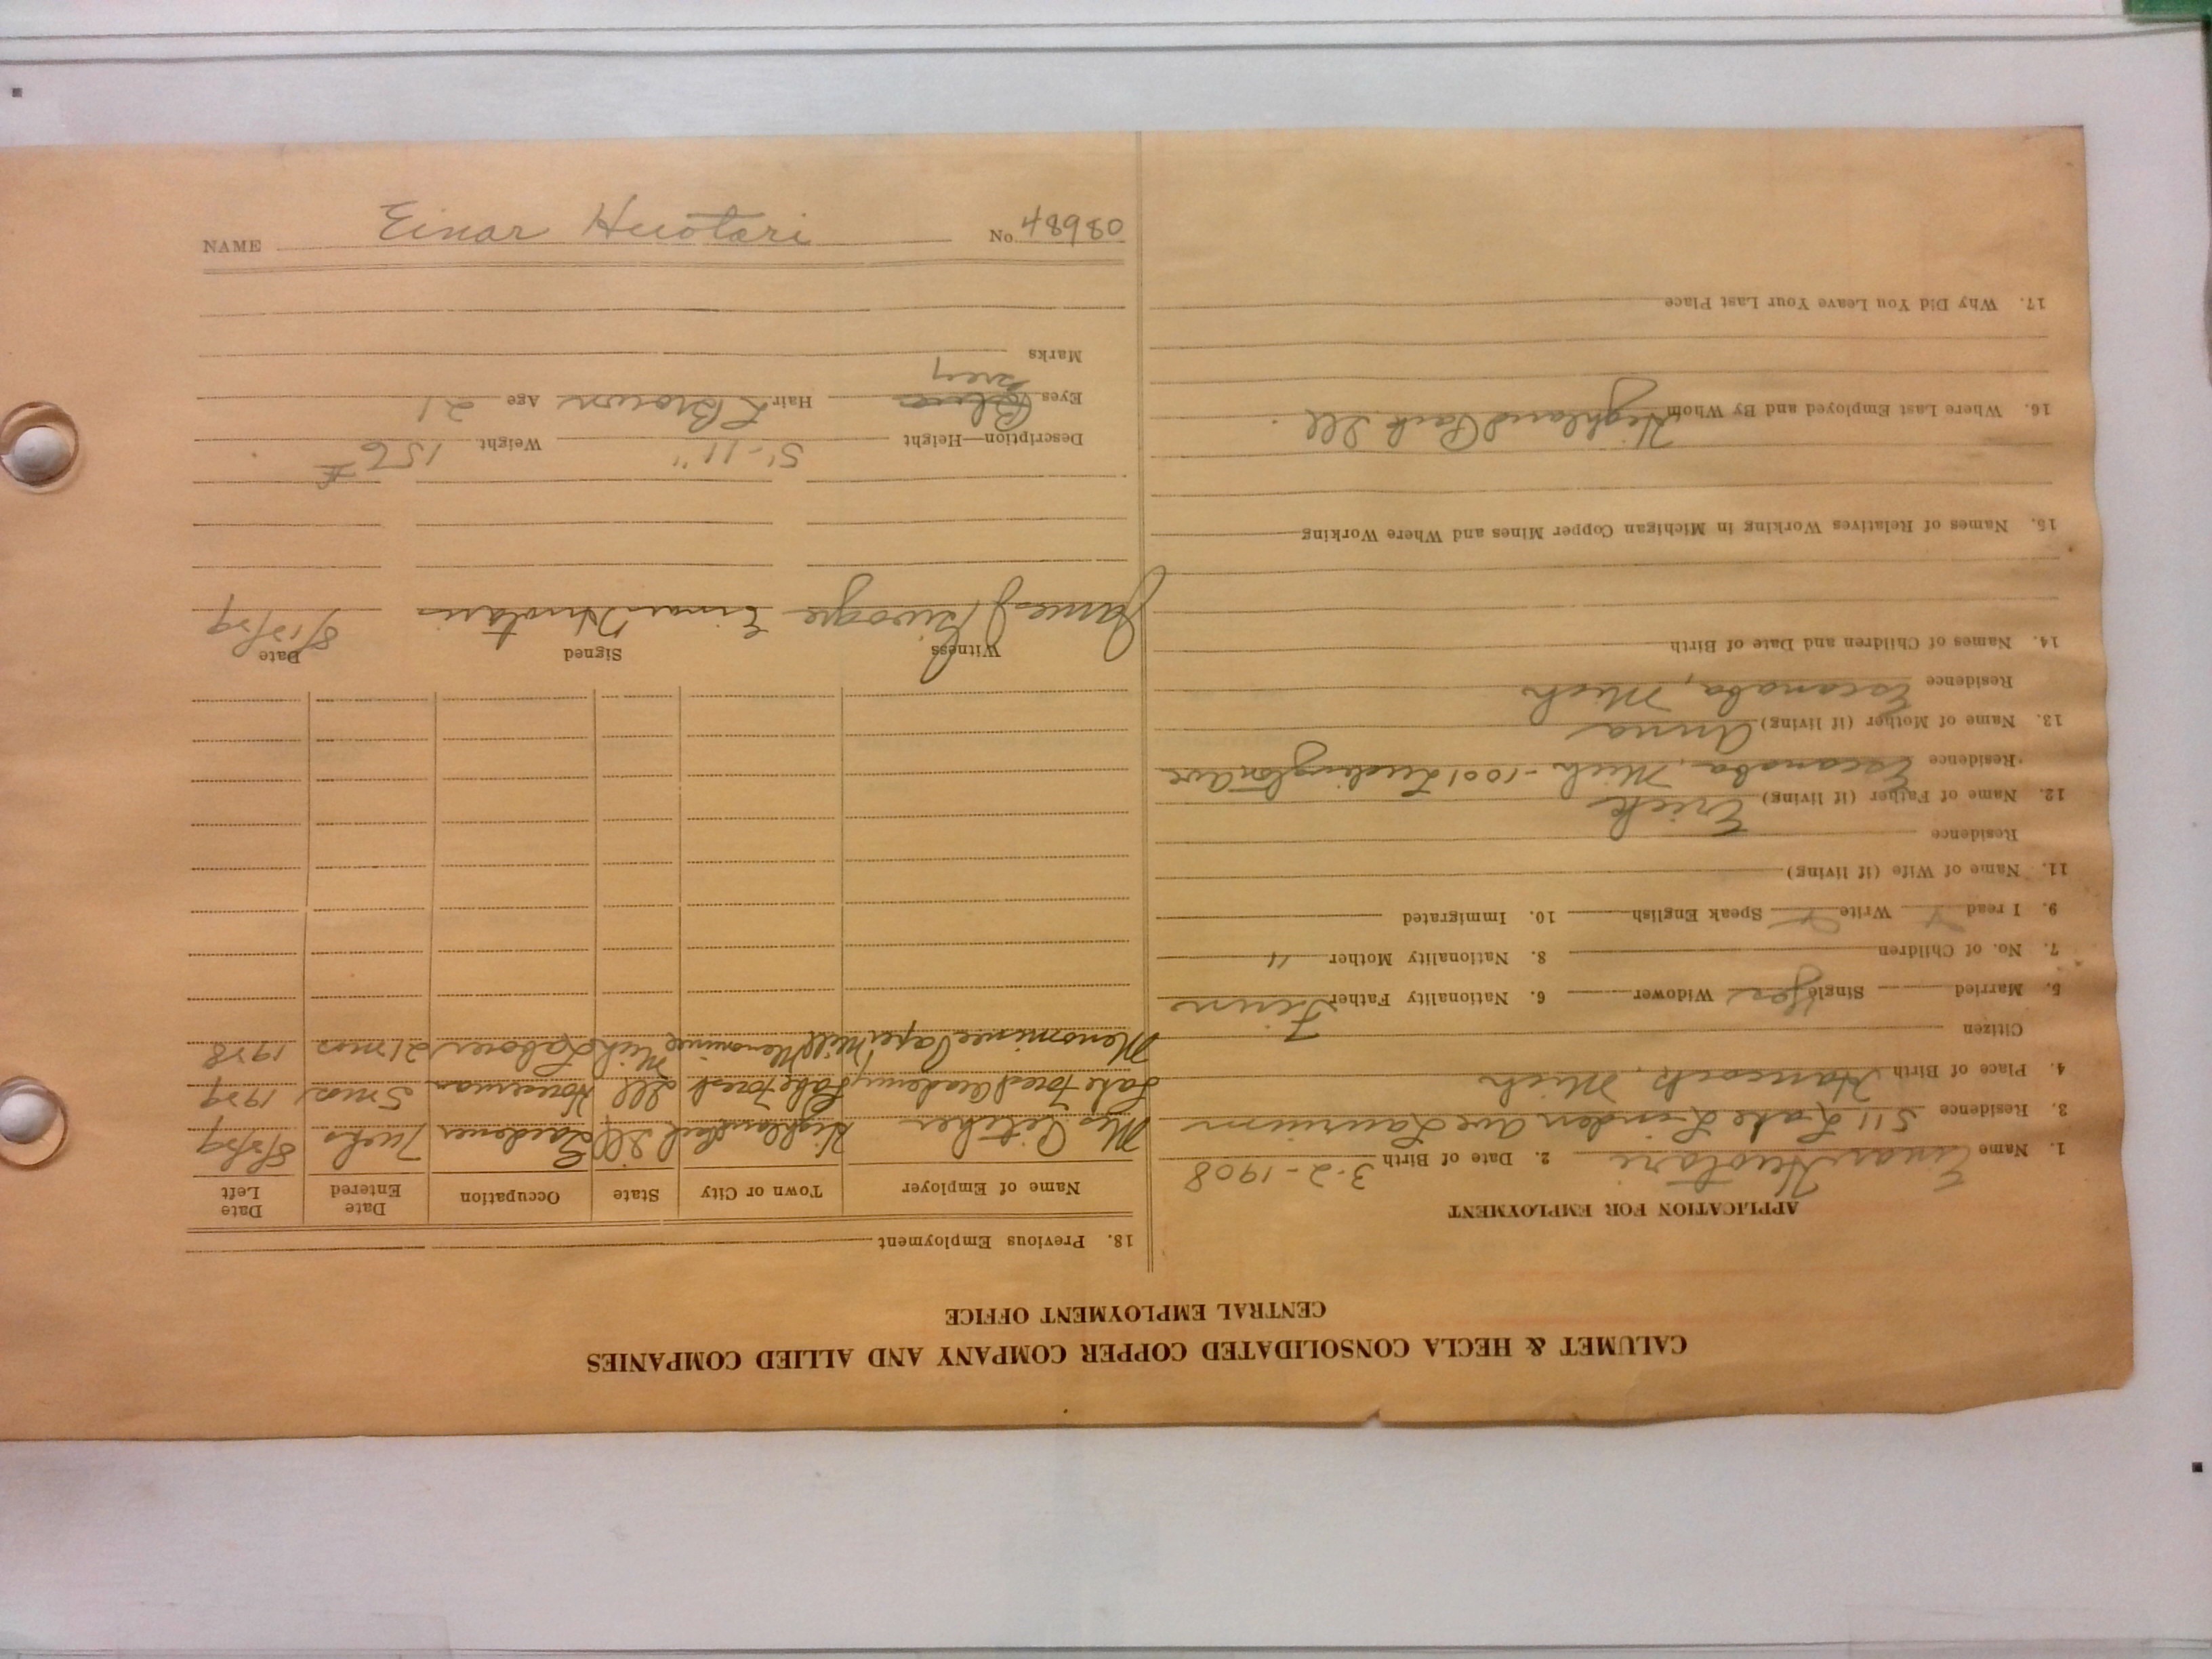 CALUMET & HECLA CONSOLIDATED COPPER COMPANY AND ALLIED COMPANIES
CENTRAL EMPLOYMENT OFFICE
APPLICATION FOR EMPLOYMENT
1. Name Einar Huotari 2. Date of Birth 3-2-1908
3. Residence 511 Lake Linden Ave Laurium
4. Place of Birth Hancock, Mich
Citizen
5. Married Single Yes Widower 6. Nationality Father Finn
7. No. of Children 8. Nationality Mother "
9. I read Write Speak English 10. Immigrated
11. Name of Wife (if living)
Residence
12. Name of Father (if living) Erick
Residence Escanaba, Mich - 1001 Ludington Ave
13. Name of Mother (if living) Anna
Residence Escanaba, Mich
14. Names of Children and Date of Birth
15. Names of Relatives Working in Michigan Copper Mines and Where Working
16. Where Last Employed and By Whom Highland Park Ill.
17. Why Did You Leave Your Last Place
18. Previous Employment
Name of Employer Town or City State Occupation Date Entered Date Left
Mrs Highland Park Ill Gardener 8/5/29
Lake Forest Academy Lake Forest Ill Houseman 5 mos 1929
Menominee Paper Mill Menominee Mich Laborer 21 mos 1928
Witness Signed Date
James Einar Huotari 8/12/29
Description—Height 5'-11" Weight 156 #
Eyes Blue Grey Hair L Brown Age 21
Marks
NAME Einar Huotari No 48980